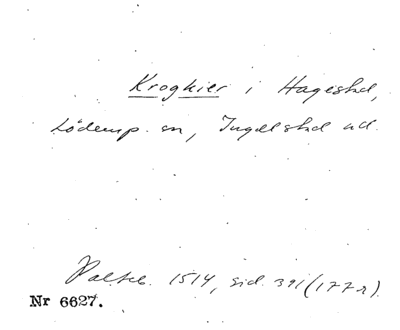 Kroghier i Hagestad,
Löderup sn, Ingelstad hd.
Palteb. 1514, sid. 391 (177 r).
Nr 6627.